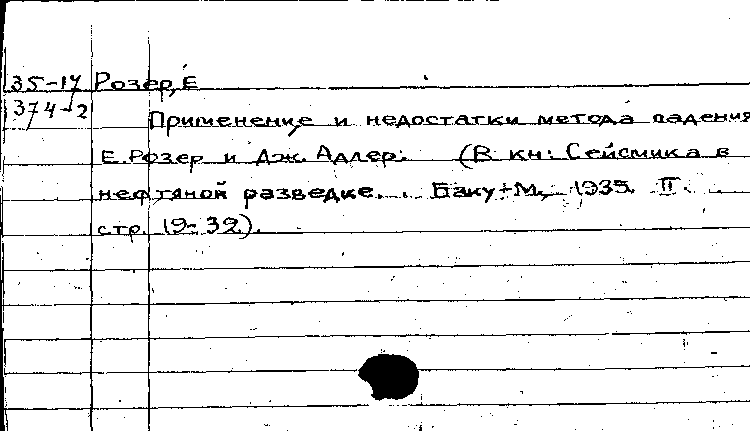 35-17 Розер, Е
374-2
Применение и недостатки метода падения
Е. Розер и Дж. Адлер. (В кн: Сейсмика в
нефтяной разведке. . Баку-М., 1935. II.
стр. 19-32).